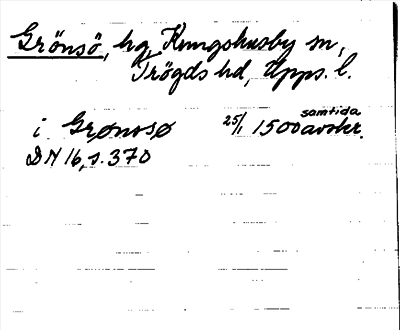 Grönsö, hg, Kungshusby sn,
Trögds hd, Upps. l.
i Grønsø 25/1 1500 samtida avskr.
DN 16, s. 370